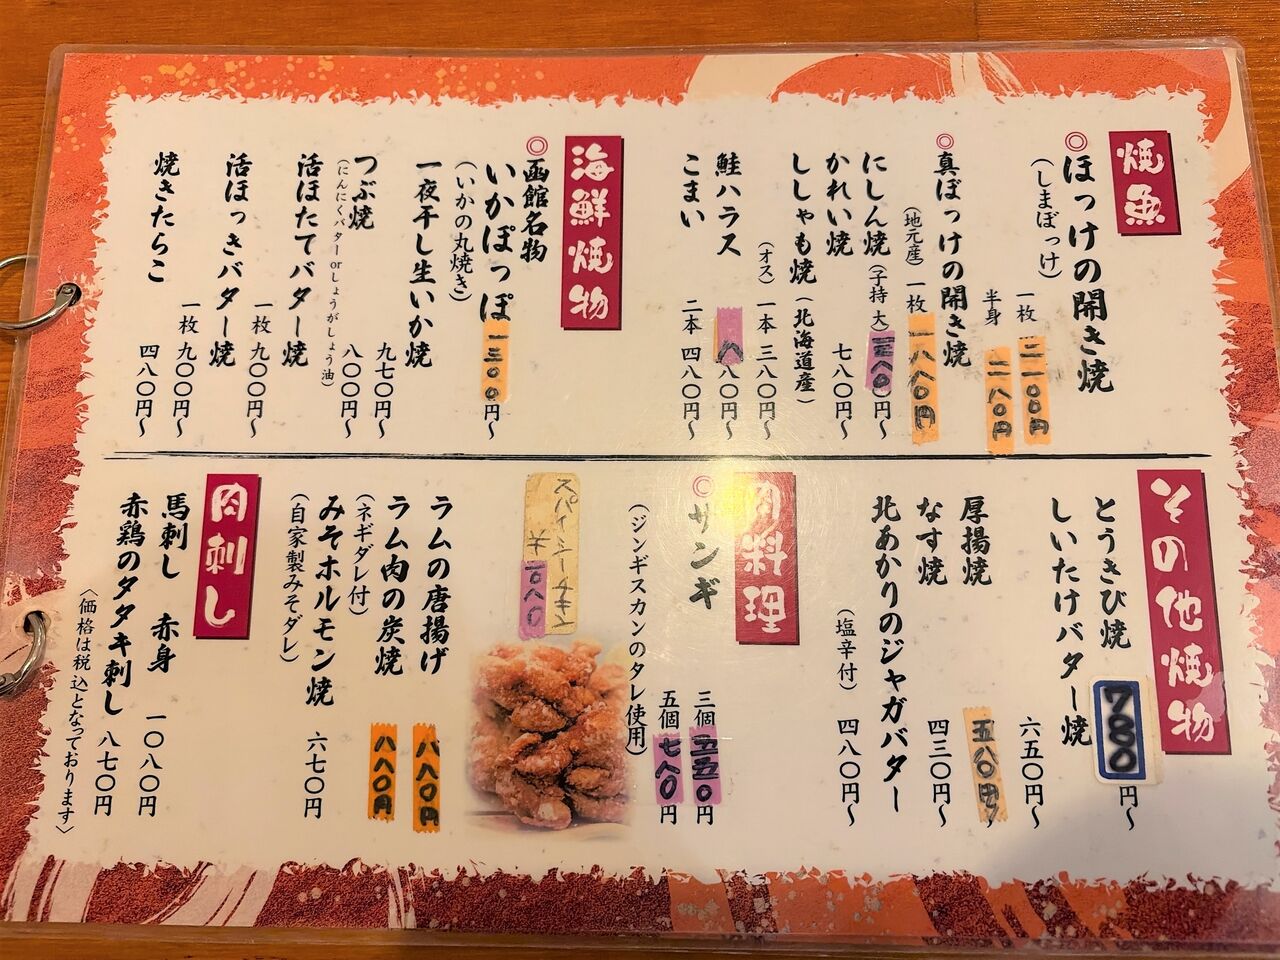 焼魚
◎ほっけの開き焼
（しまほっけ）
一枚 二一00円
半身 一一八0円
◎真ほっけの開き焼
（地元産） 一枚 一八八0円
にしん焼（子持 大） 円〜
かれい焼 七八〇円〜
ししゃも焼（北海道産）
（オス） 一本 三八〇円〜
鮭ハラス 八八〇円〜
こまい 二本 四八〇円〜
海鮮焼物
◎函館名物
いかぽっぽ 一三00円〜
（いかの丸焼き）
一夜干し生いか焼 九七〇円〜
つぶ焼 八〇〇円〜
（にんにくバター orしょうがしょう油）
活ほたてバター焼 一枚 九〇〇円〜
活ほっきバター焼 一枚 九〇〇円〜
焼きたらこ 四八〇円〜
その他焼物
とうきび焼 780円〜
しいたけバター焼 六五〇円〜
厚揚焼 五八0円〜
なす焼 四三〇円〜
北あかりのジャガバター
（塩辛付） 四八〇円〜
肉料理
◎ザンギ 三個 五五0円
五個 七八0円
（ジンギスカンのタレ使用）
スパイシーチキン
ラムの唐揚げ 八八0円
ラム肉の炭焼 八八0円
（ネギダレ付）
みそホルモン焼 六七〇円
（自家製みそダレ）
肉刺し
馬刺し 赤身 一〇八〇円
赤鶏のタタキ刺し 八七〇円
〈価格は税込となっております〉